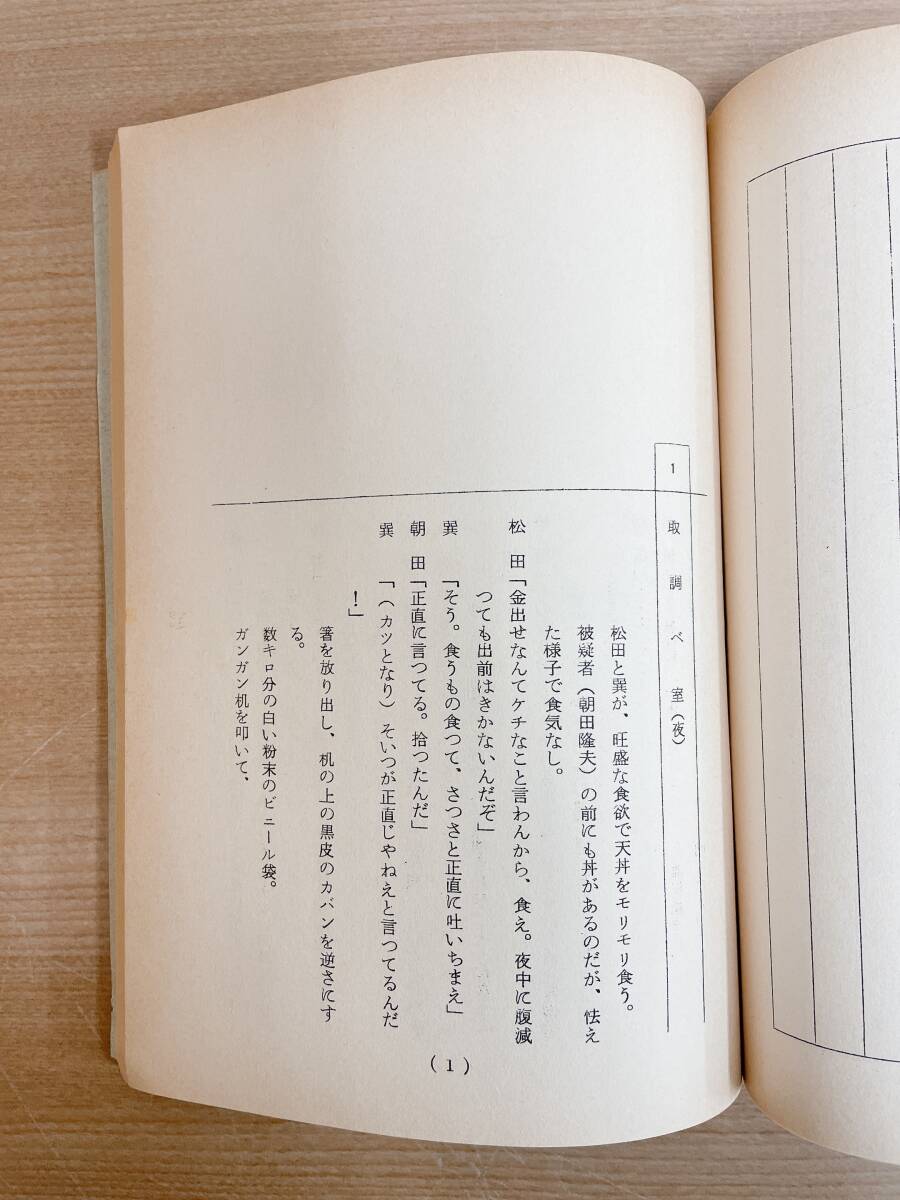 1 取調べ室（夜）
松田と巽が、旺盛な食欲で天丼をモリモリ食う。
被疑者（朝田隆夫）の前にも丼があるのだが、怯え
た様子で食気なし。
松田「金出せなんてケチなこと言わんから、食え。夜中に腹減
つても出前はきかないんだぞ」
巽「そう。食うもの食つて、さつさと正直に吐いちまえ」
朝田「正直に言つてる。拾つたんだ」
巽「（カツとなり）そいつが正直じやねえと言つてるんだ
！」
箸を放り出し、机の上の黒皮のカバンを逆さにす
る。
数キロ分の白い粉末のビニール袋。
ガンガン机を叩いて、
（1）